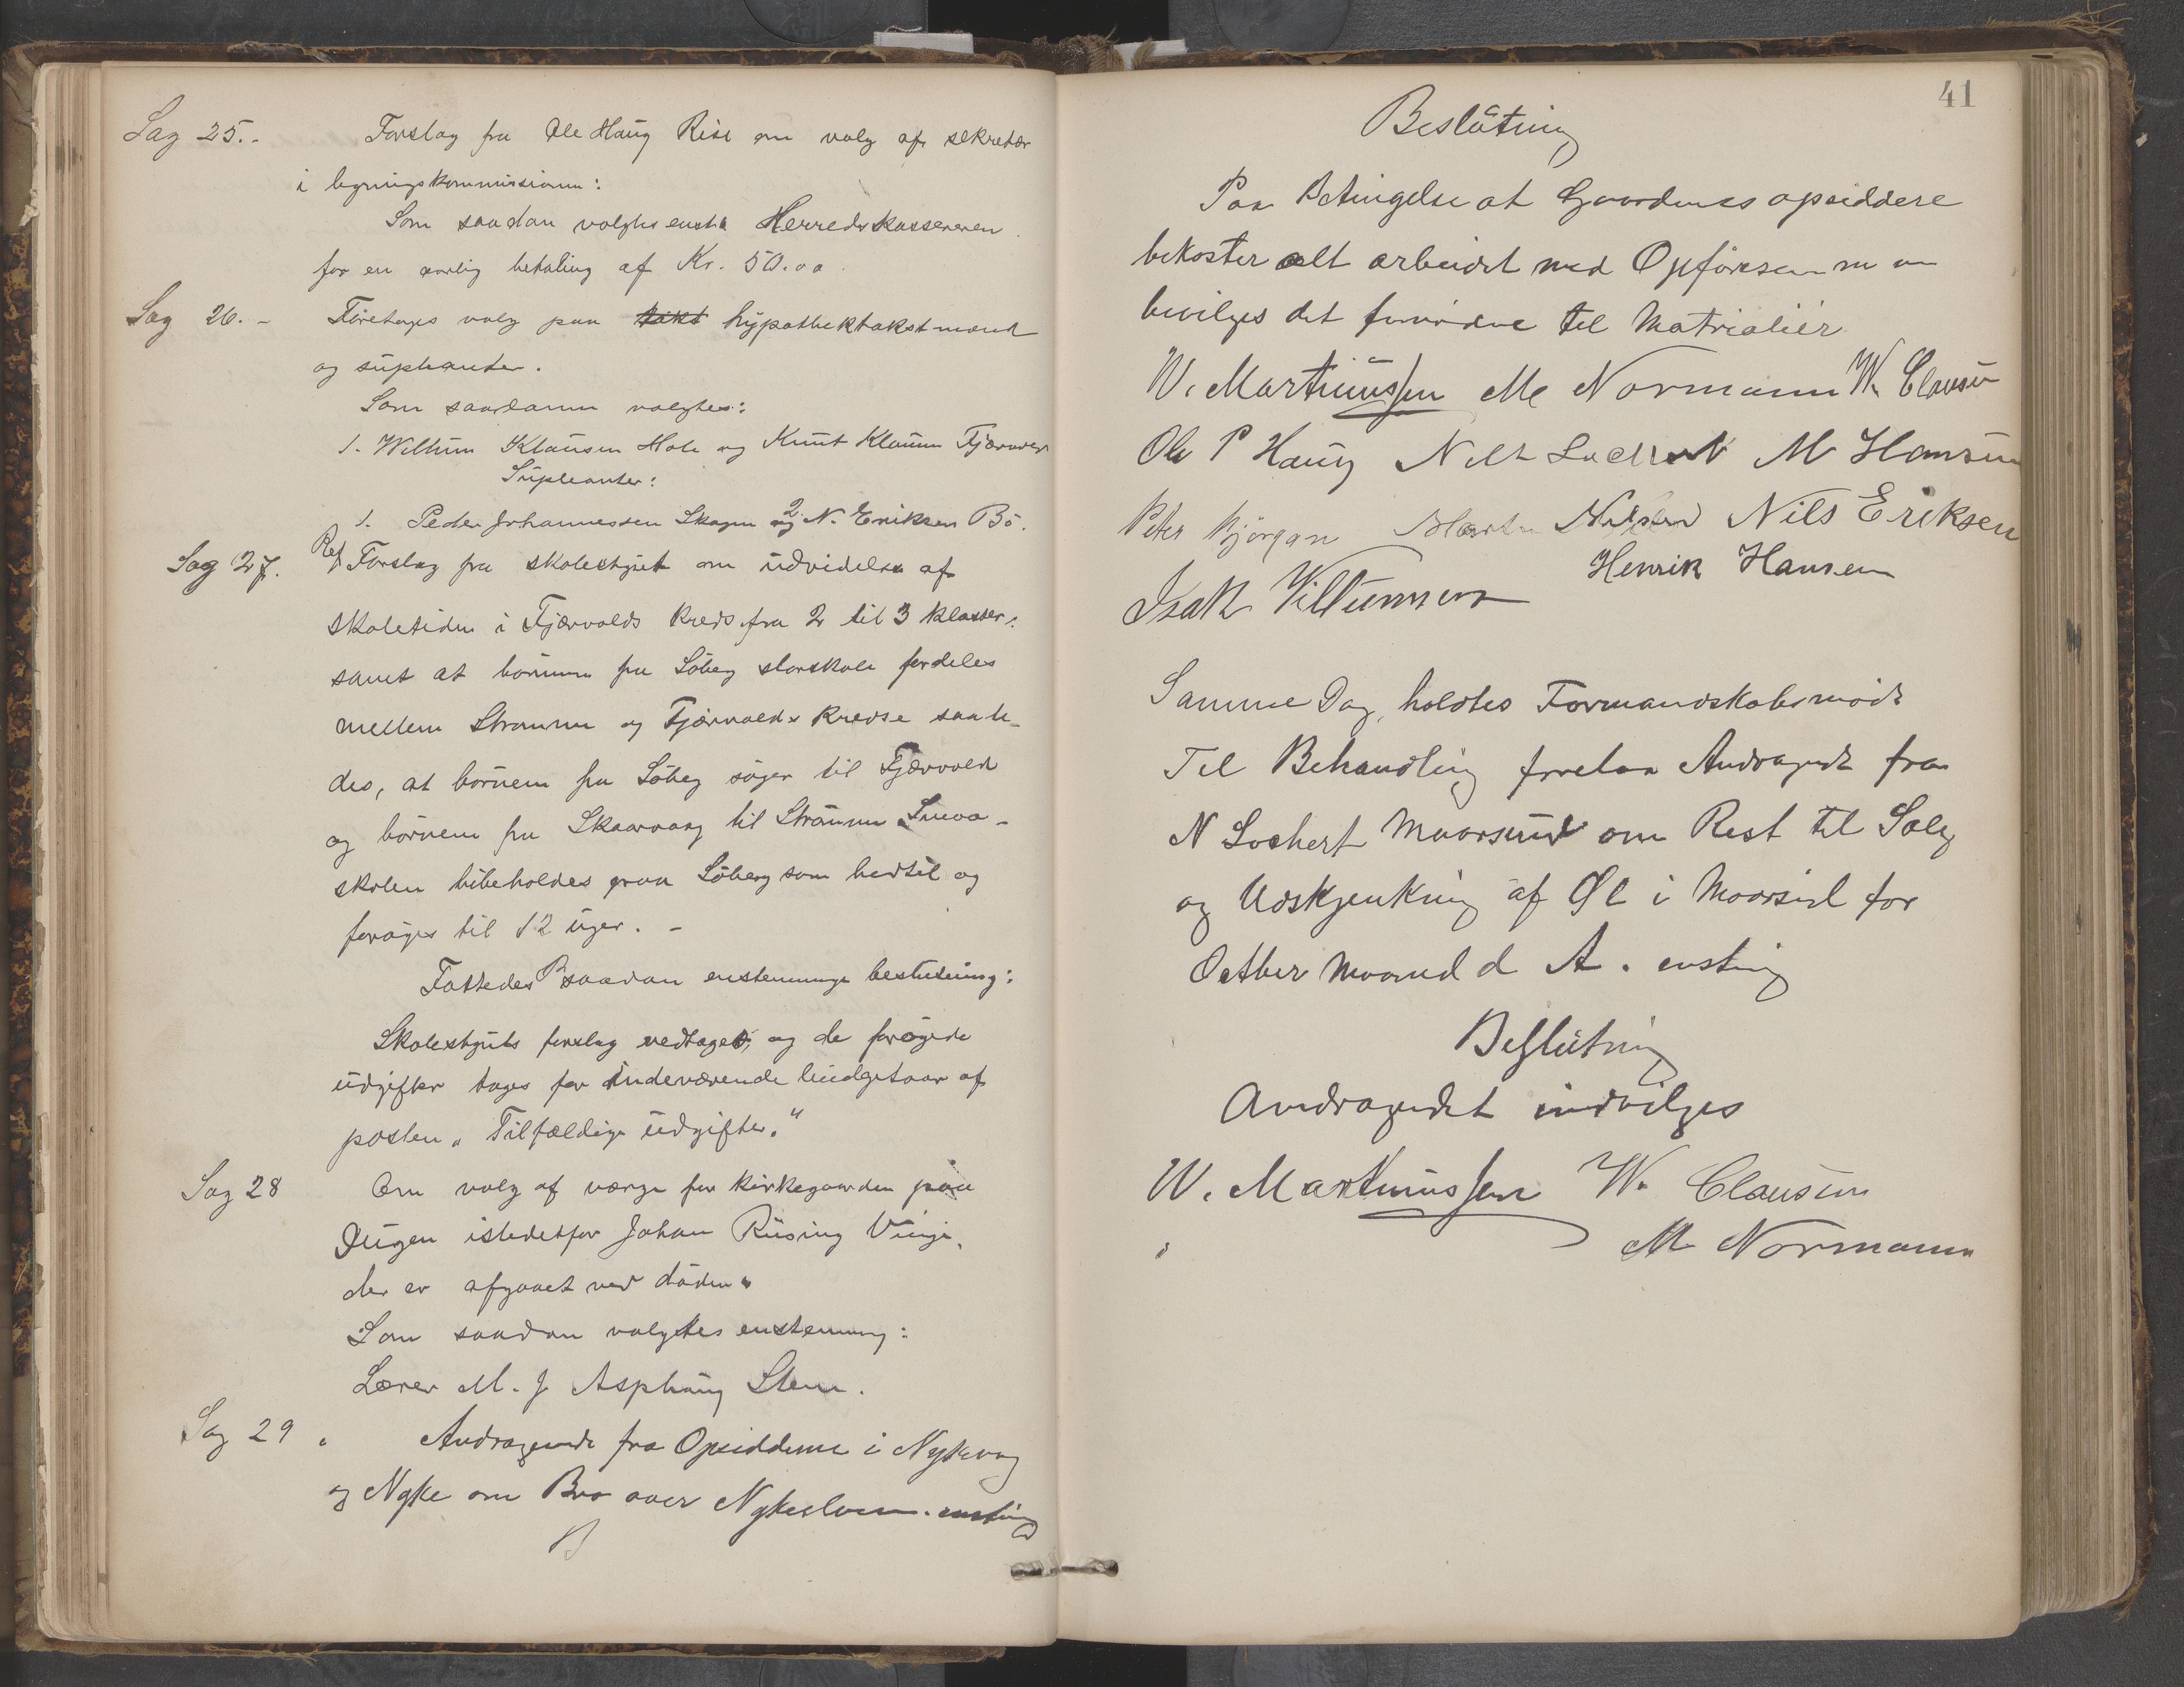 Sag 25.- Forslag fra Ole Haug Rise om valg af sekretær
i ligningskommissionen:
Som saadan valgtes enst. Herredskassereren
for en aarlig betaling af Kr. 50.00
Sag 26.- Foretages valg paa takt hypothektakstmænd
og supleanter.
Som saadanne valgtes:
1. Willum Klausen Hole og Knut Klausen Fjærvoll
Supleanter:
1. Peder Johannessen Skagen og 2. N. Eriksen Bö.
Sag 27. Ref Forslag fra skolestyret om udvidelse af
skoletiden i Fjærvolds kreds fra 2 til 3 klasser,
samt at börnene fra Söberg storskole fordeles
mellem Strømme og Fjærvolds kredse saale-
des, at börnene fra Söberg söger til Fjærvold
og börnene fra Skaarvaag til Strömme Smaa-
skolen bibeholdes paa Söberg som hertil og
foröges til 12 uger. -
Fattedes saadan enstemmige beslutning:
Skolestyrets forslag vedtaget, og de forögede
udgifter tages for indeværende budgetaar af
posten „Tilfældige udgifter."
Sag 28 Om valg af værge for kirkegaarden paa
Dugen istedetfor Johan Rusing Vinje,
der er afgaaet ved döden.
Som saadan valgtes enstemmig:
Lærer M. J Asphaug Stene.
Sag 29. Andragende fra Opsidderne i Nykvaag
og Nyke om Bro over Nykeelven. enstemig
B
41
Beslutning
Paa Betingelse at Gaardenes opsiddere
bekoster alt arbeidet med Opförelsen
bevilges det fornödne til Matrialier
W. Martinussen M Normann W. Clausen
Ole P Haug Nils Lochert M Hansen
Peter Björgan Martin Nilsen Nils Eriksen
Isak Villumsen Henrik Hansen
Samme Dag, holdtes Formandskabsmöde
Til Behandling forelaa Andragende fra
N Lochert Maarsund om Ret til Salg
og Udskjenkning af Øl i Maarsund for
Octber Maaned d A. enstimig
Beslutning
Andragendet indvilges
W. Martinussen W. Clausen
M Normann